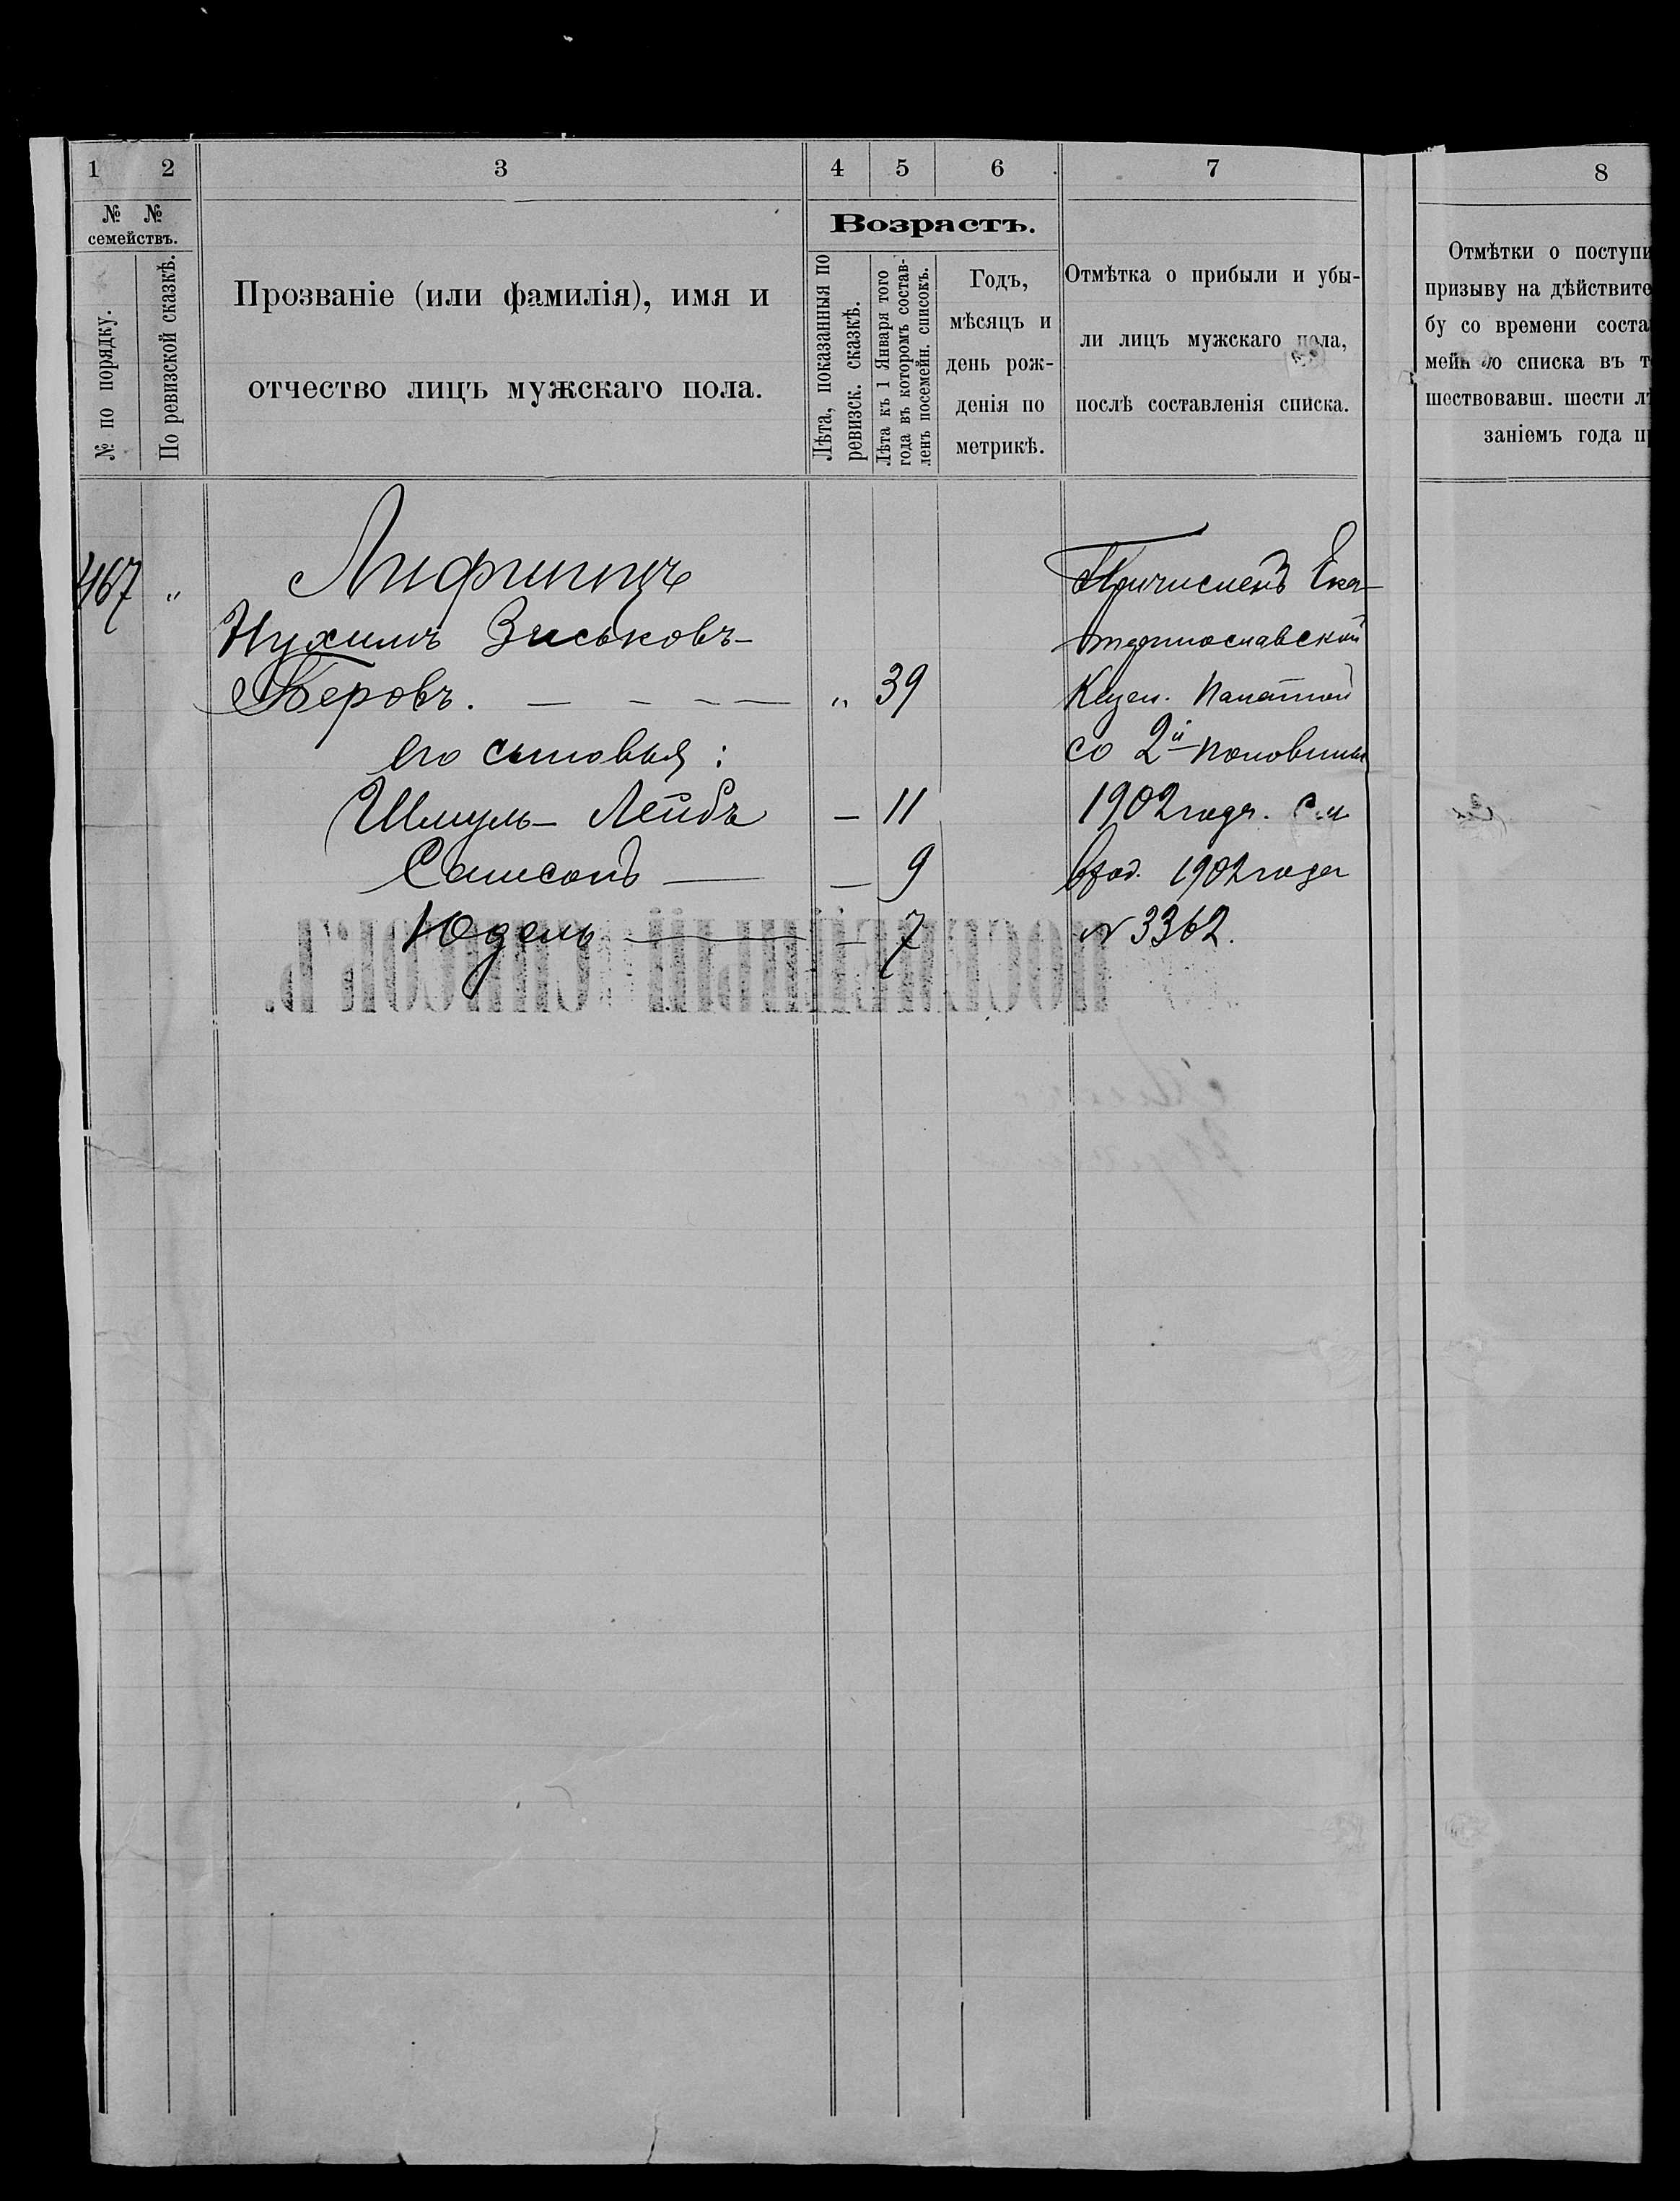 1
2
3
4
5
6
7
8
№ № семействъ.
№ по порядку.
По ревизской сказкѣ.
Прозваніе (или фамилія), имя и
отчество лицъ мужскаго пола.
Возрастъ.
Лѣта, показанныя по
ревизск. сказкѣ.
Лѣта къ 1 Января того
года въ которомъ состав-
ленъ посемейн. списокъ.
Годъ,
мѣсяцъ и
день рож-
денія по
метрикѣ.
Отмѣтка о прибыли и убы-
ли лицъ мужскаго пола,
послѣ составленія списка.
Отмѣтки о поступи
призыву на дѣйствите
бу со времени соста
списка въ т
шествовавш. шести лѣ
заніемъ года пр
467 "
Нухимъ Зиськовъ-
Беровъ. — - - — " 39
его сыновья:
Шмуль-Лейбъ — 11
Самсонъ — — 9
Юдель — - 7
Причисленъ Ека-
теринославской
Казен. Палатой
со 2й половины
1902 года. См
вход. 1902 года
№ 3362.
ПОСЕМЕЙНЫЙ СПИСОКЪ.